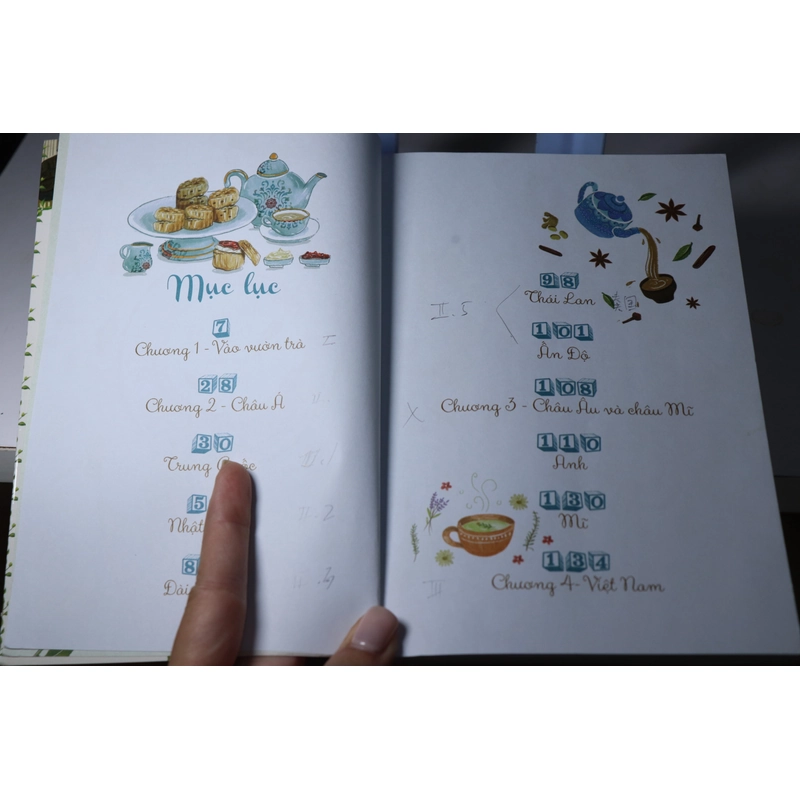 Mục lục
7
Chương 1 - Vào vườn trà
I
28
Chương 2 - Châu Á
II.
30
Trung
II.1
5
Nhật
II.2
8
Đài
II
98
Thái Lan
II.5
101
Ấn Độ
108
X Chương 3 - Châu Âu và châu Mĩ
110
Anh
130
Mĩ
134
Chương 4 - Việt Nam
III